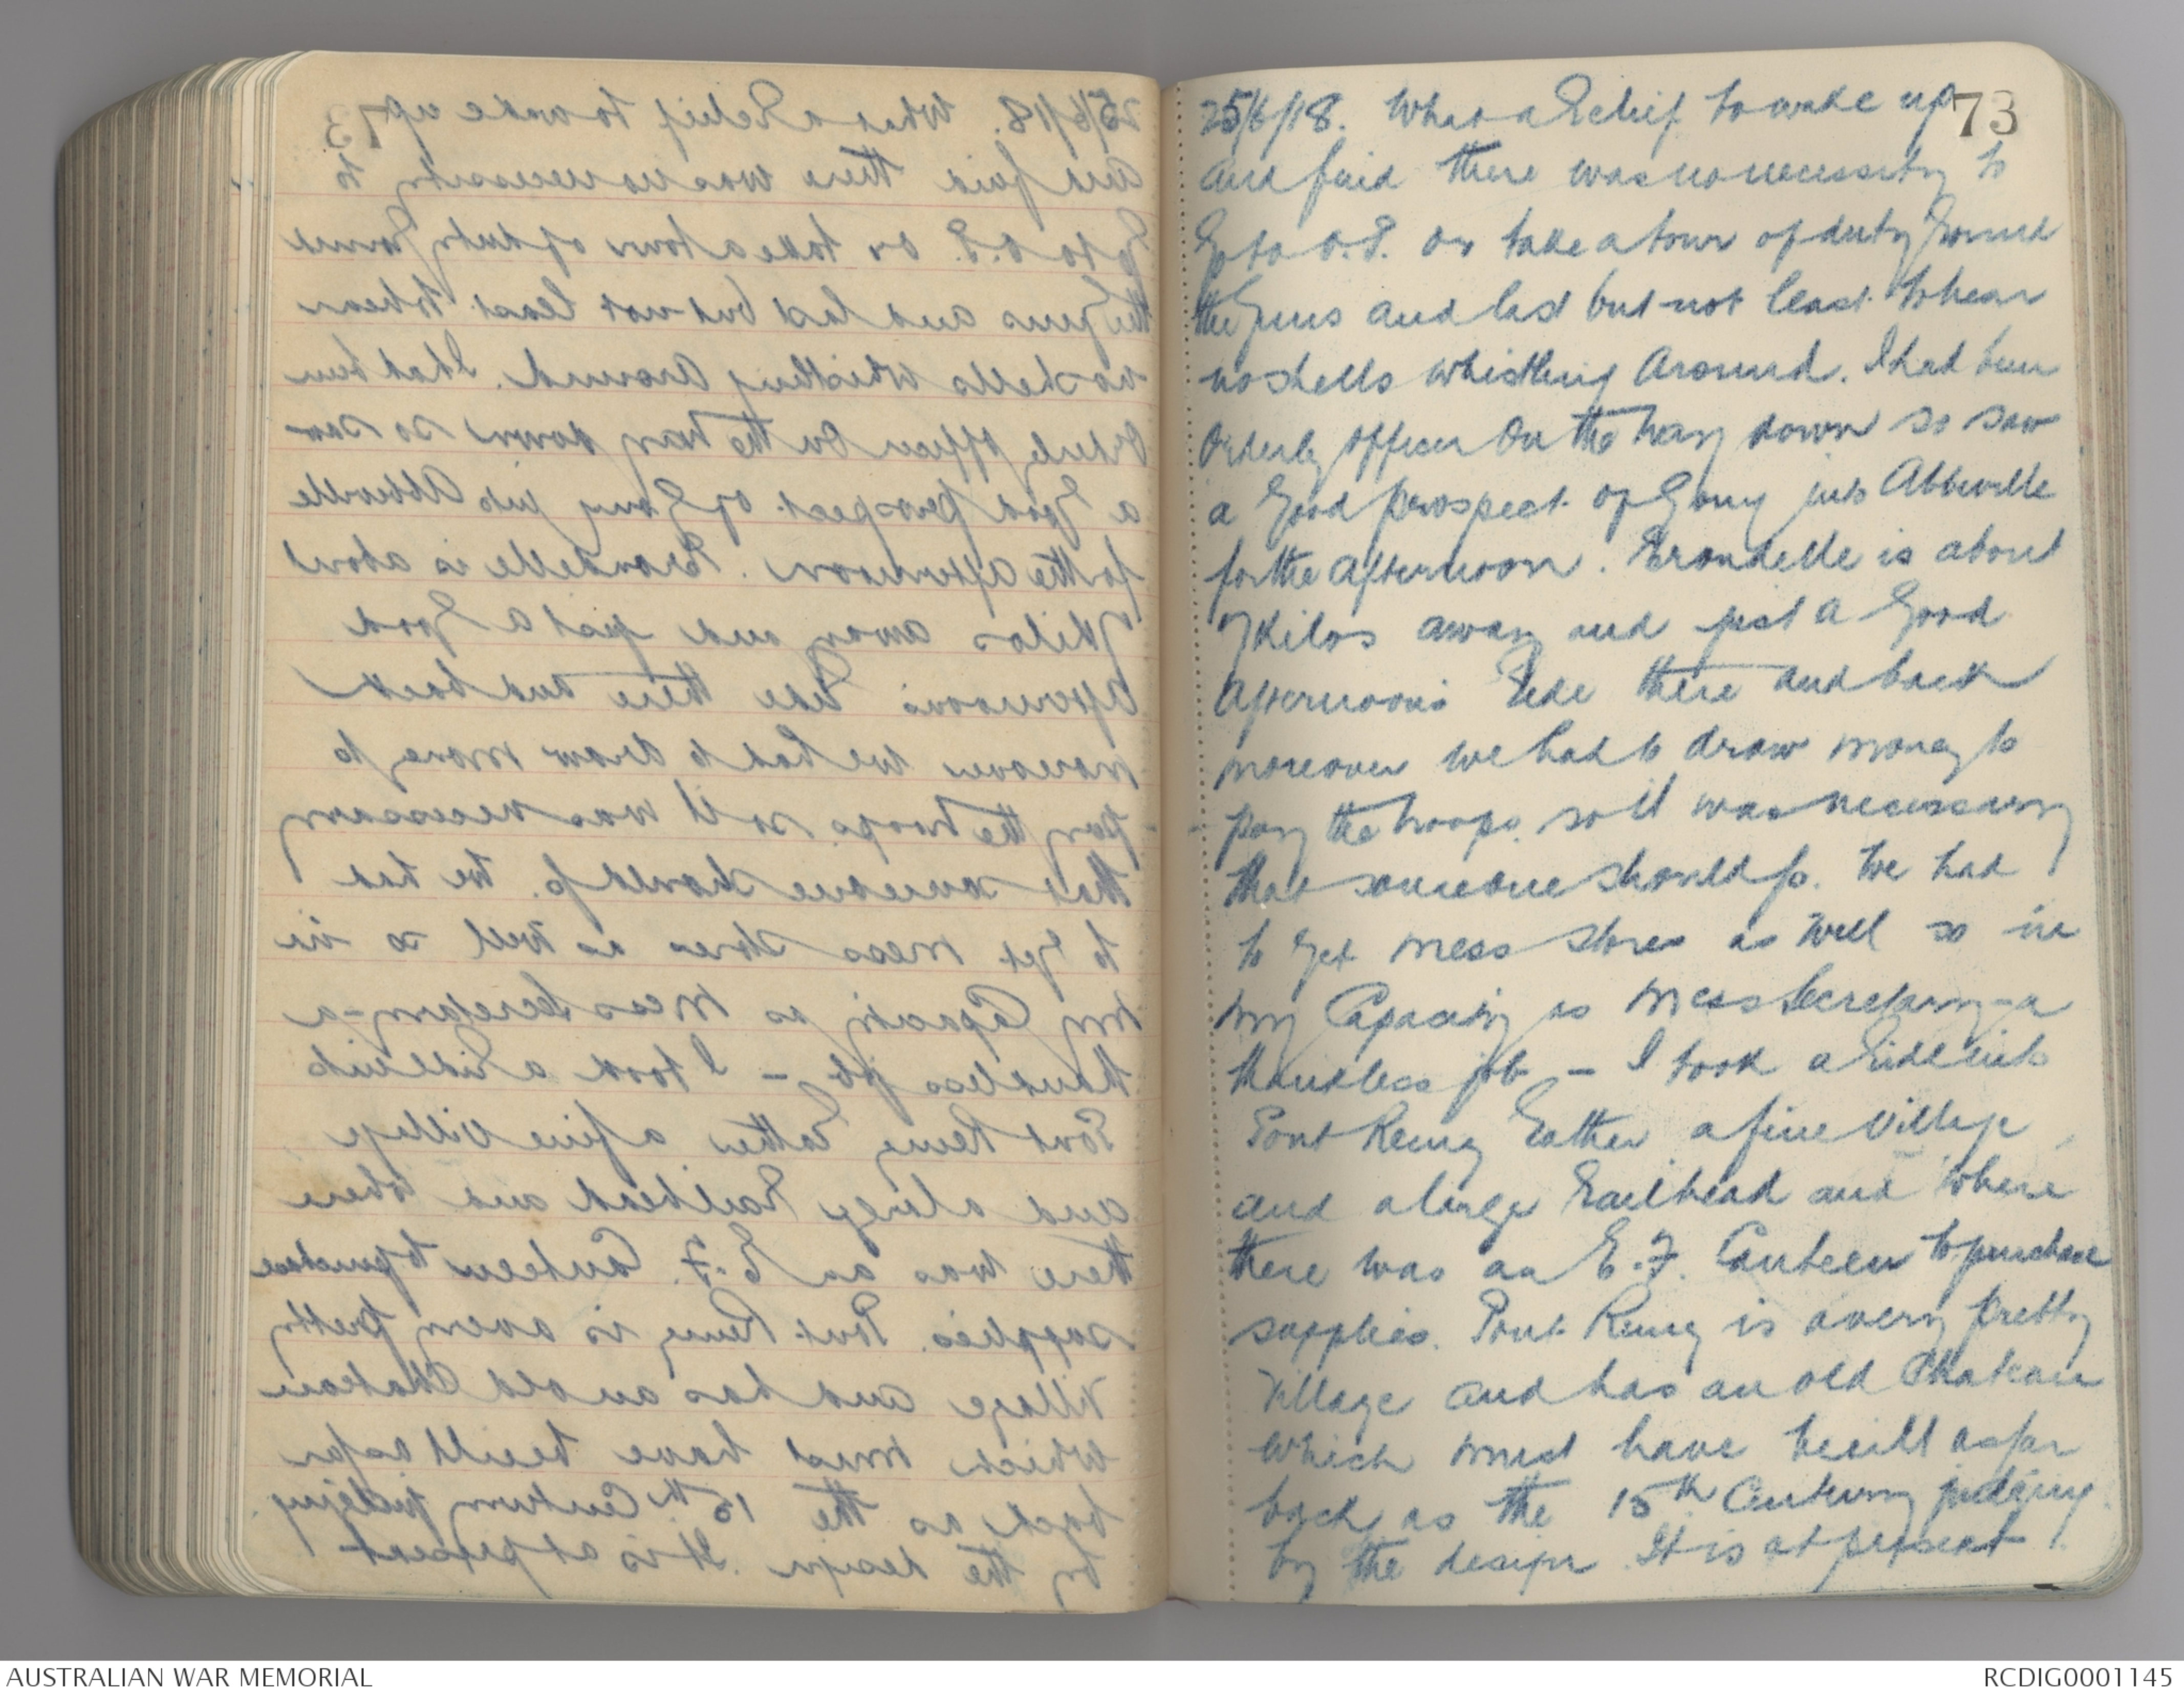 73
25/6/18. What a Relief to wake up
and find there was no necessity to
go to O.P. or take a tour of duty round
the guns and last but not least to hear
no shells whistling around. I had been
Orderly officer on the way down so saw
a good prospect of going into Abbeville
for the afternoon. Erondelle is about
7 kilos away and just a good
afternoon's Ride there and back
moreover we had to draw money to
pay the troops so it was necessary
that someone should go. We had
to get mess stores as well so in
my Capacity as Mess Secretary - a
thankless job - I took a Ride into
Pont Remy Rather a fine Village
and a large Railhead and where
there was an E.F. Canteen to purchase
supplies. Pont Remy is a very pretty
Village and has an old Chateau
which must have built as far
back as the 15th Century judging
by the design. It is at present
AUSTRALIAN WAR MEMORIAL
RCDIG0001145